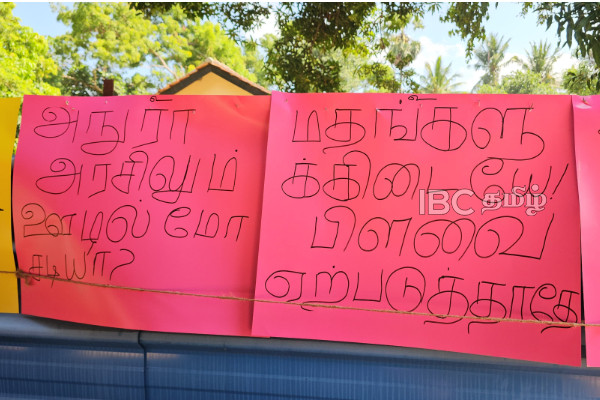 அநுரா
அரசிலும்
ஊழல் மோ
சடியா?
மதங்களு
க்கிடையே!
பிளவை
ஏற்படுத்தாதே
IBC தமிழ்